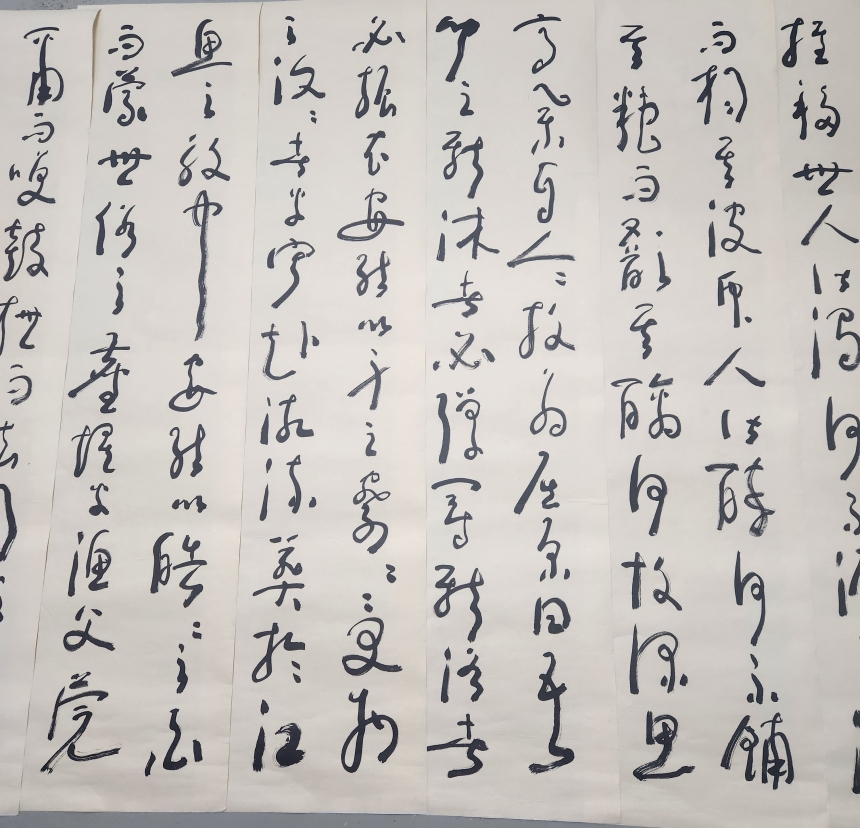 推移世人皆濁何不淈
而揚其波眾人皆醉何不餔
其糟而歠其醨何故深思
高舉自令放為屈原曰吾
聞之新沐者必彈冠新浴者
必振衣安能以身之察々受物
之汶々者乎寧赴湘流葬於江
魚之腹中安能以皓々之白
而蒙世俗之塵埃乎漁父莞
爾而笑鼓枻而去